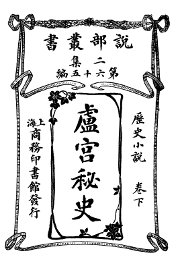 說部叢書
二集
第六十五編
歷史小說 卷下
盧宮秘史
上海商務印書館發行